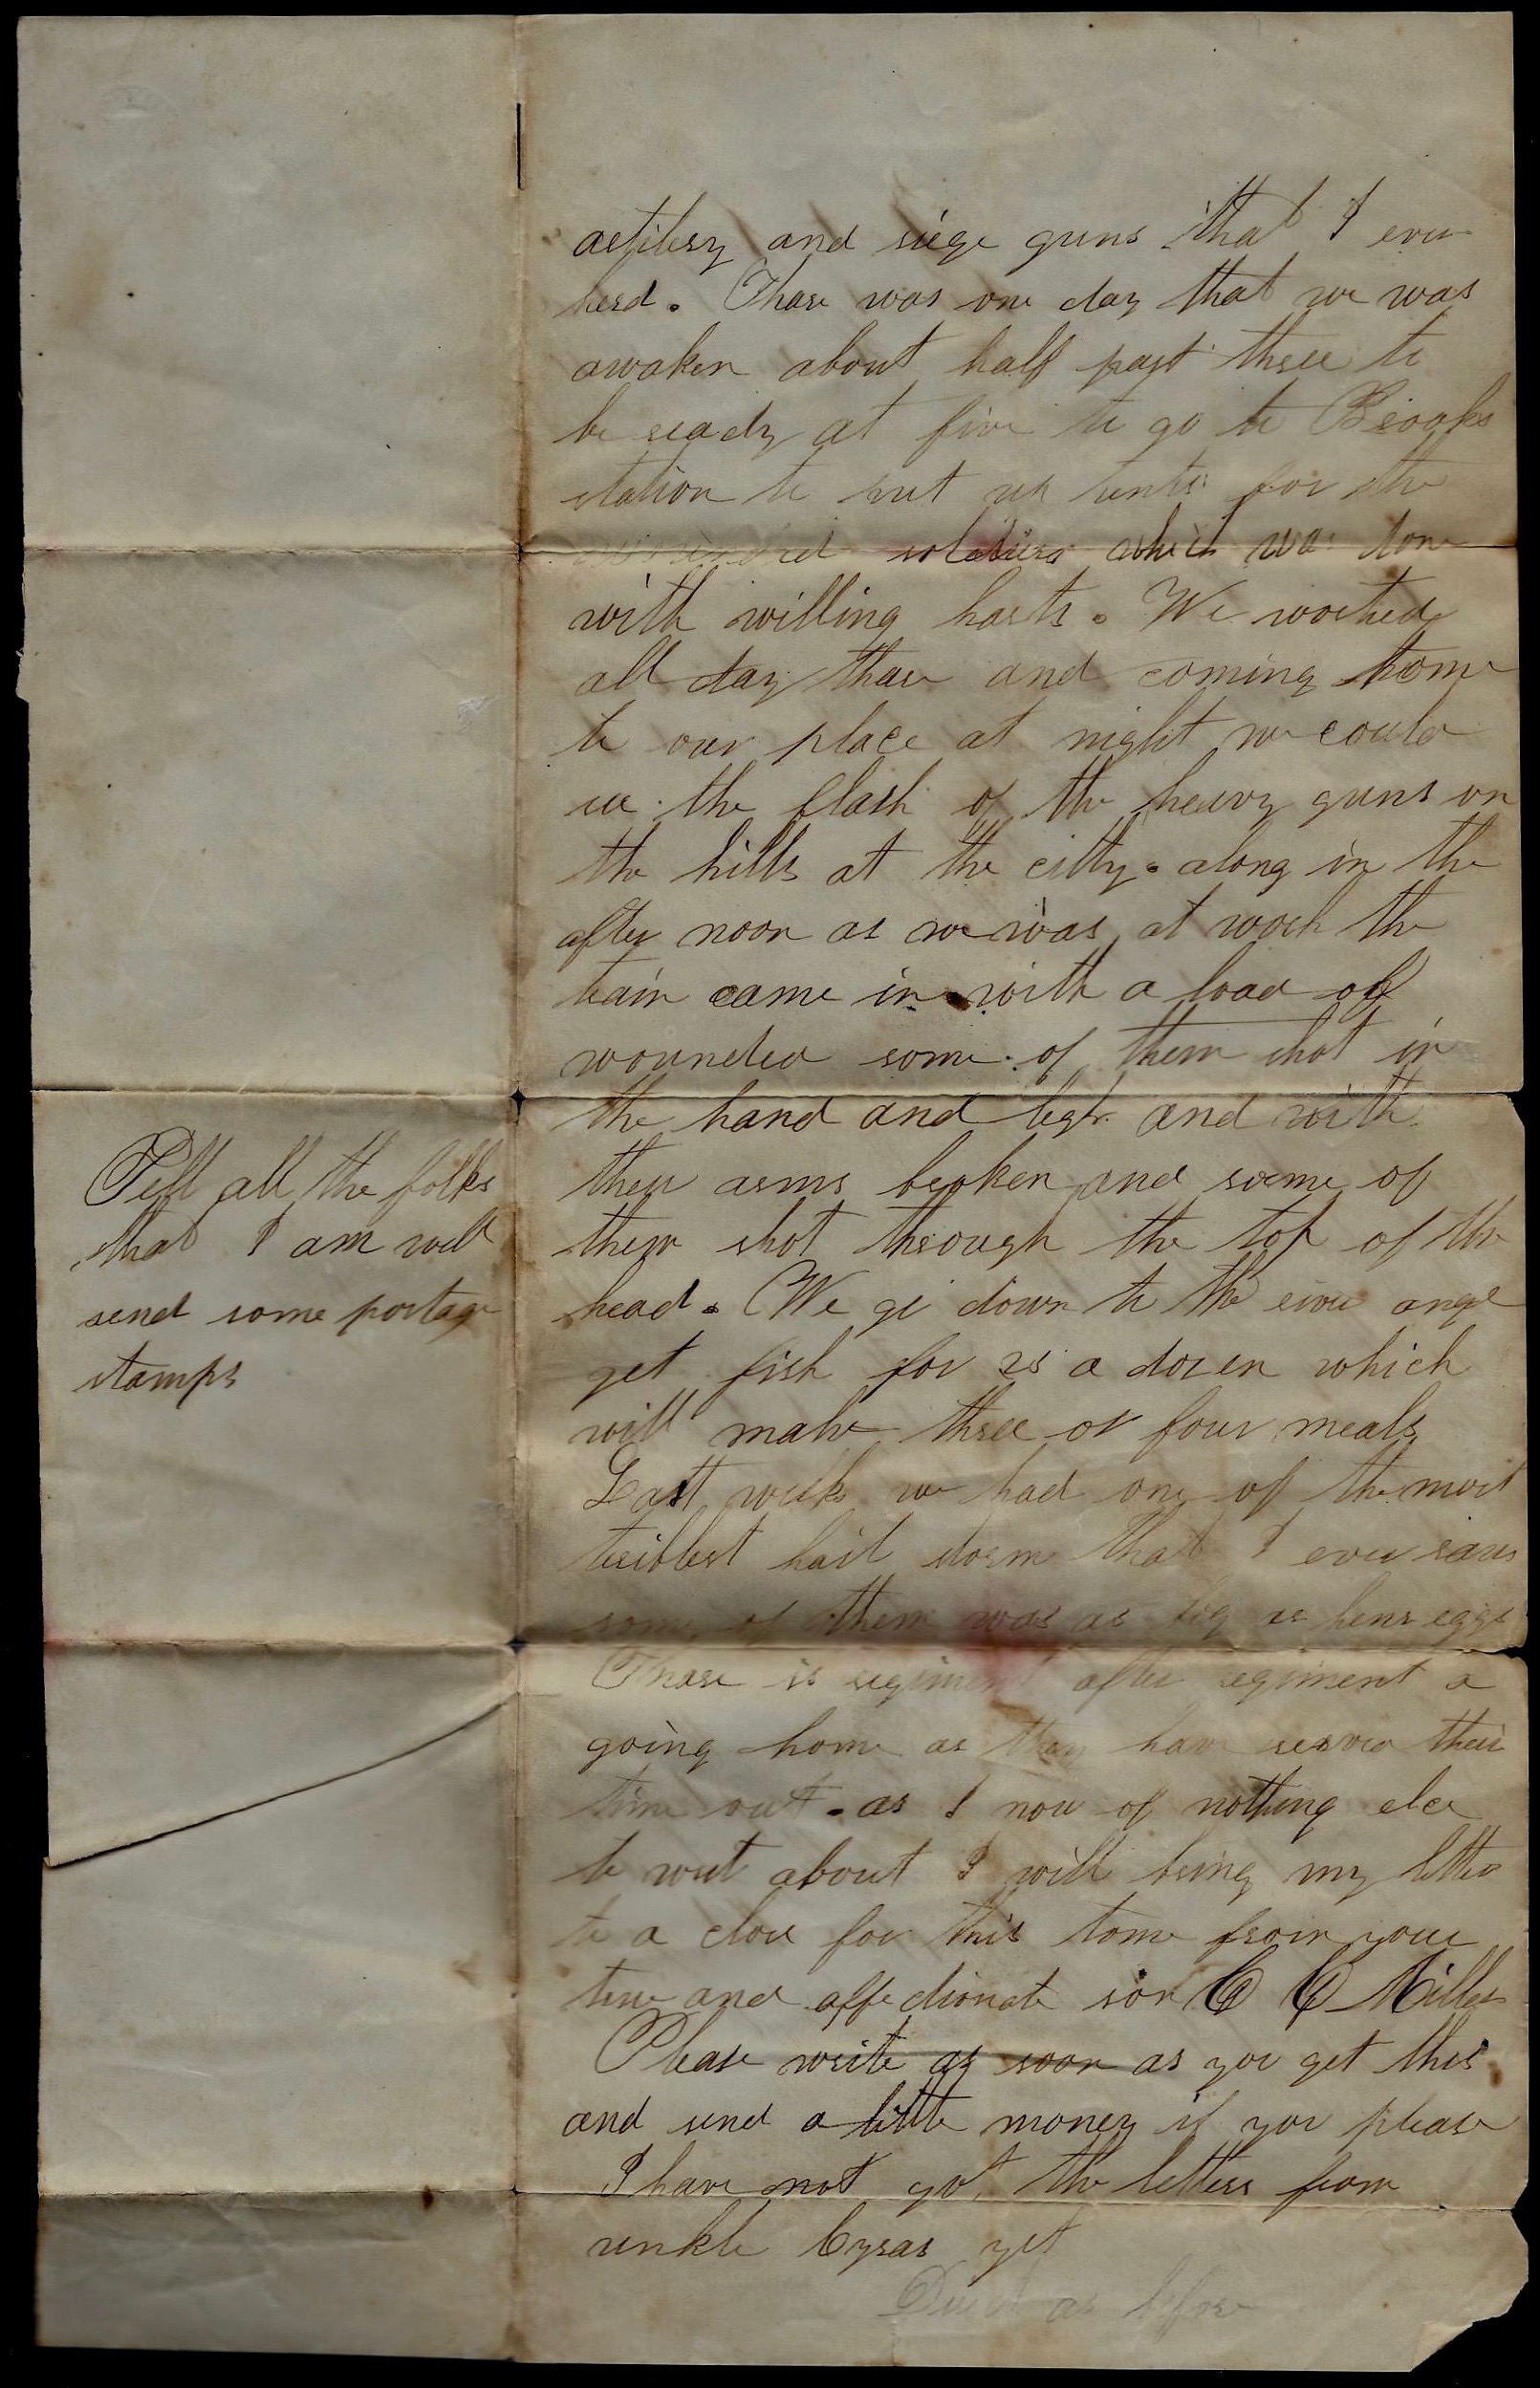 Tell all the folks
that I am well
send some postage
stamps
artilery and siege guns that I ever
herd. Thare was one day that we was
awaken about half past three to
be ready at five to go to Brooks
station to put up tents for the
wounded soldiers which was done
with willing harts. We worked
all day thare and coming home
to our place at night we could
see the flash of the heavy guns on
the hills at the citty. along in the
after noon as we was at work the
train came in with a load of
wounded some of them shot in
the hand and legs and with
their arms broken and some of
them shot through the top of the
head. We go down to the river and
get fish for a dozen which
will make three or four meals
Last week we had one of the most
teriblest hail storm that I ever saw
some of them was as big as hens eggs
Thare is regiment after regiment a
going home as they have served their
time out. as I now of nothing else
to writ about I will bring my letter
to a close for this time from your
true and affectionate son C C Miller
Please write as soon as you get this
and send a little money if you please
I have not got the letters from
unkle Cyras yet
Direct as before